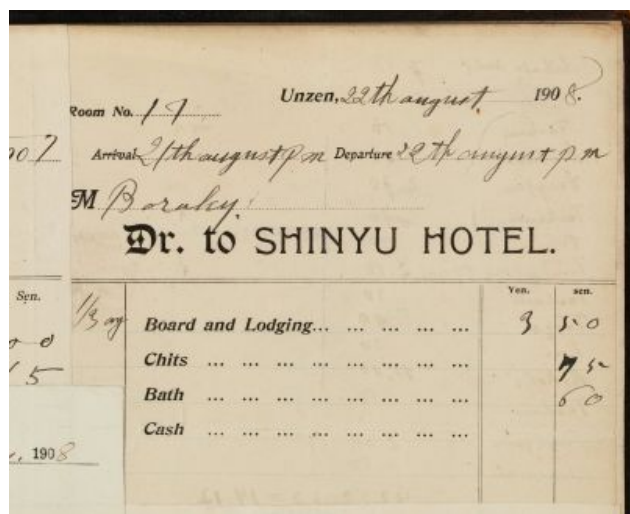 Unzen, 22th august. 1908.
Room No. 17
Arrival 21th august p m Departure 22th august p m
M Boraley.
Dr. to SHINYU HOTEL.
Yen. sen.
1/3 ay Board and Lodging... ... ... ... ... 3 50
Chits ... ... ... ... ... ... ... ... 75
Bath ... ... ... ... ... ... ... ... 60
Cash ... ... ... ... ... ... ... ...
907
Sen.
0 0
15
, 1908